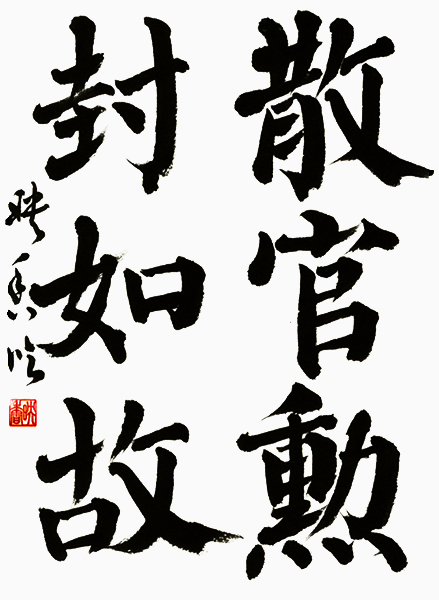 散官勲
封如故